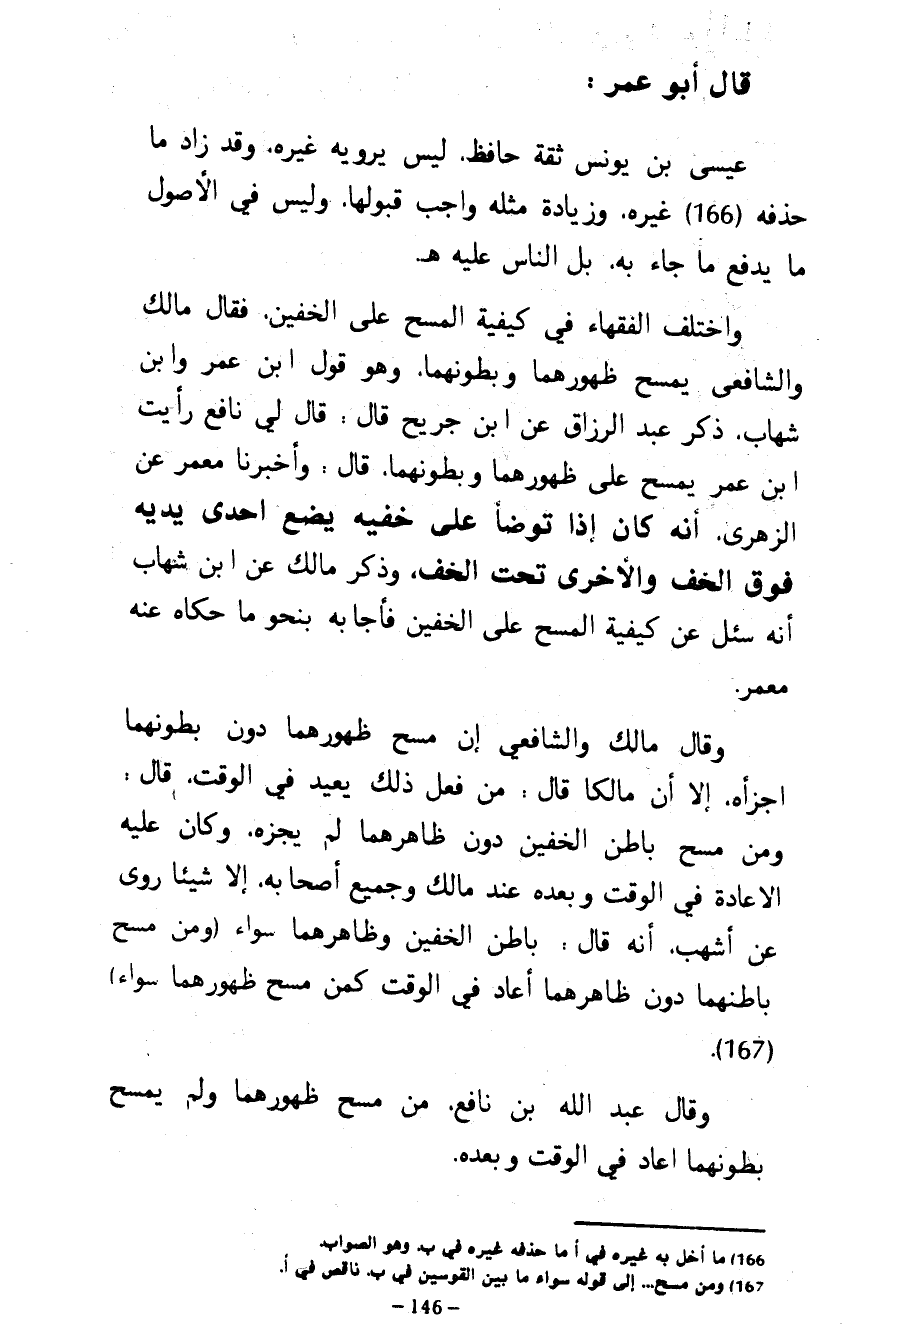 قال أبو عمر :
عيسى بن يونس ثقة حافظ. ليس يرويه غيره. وقد زاد ما
حذفه (166) غيره. وزيادة مثله واجب قبولها. وليس في الأصول
ما يدفع ما جاء به. بل الناس عليه هـ.
واختلف الفقهاء في كيفية المسح على الخفين. فقال مالك
والشافعى يمسح ظهورهما وبطونهما. وهو قول ابن عمر وابن
شهاب. ذكر عبد الرزاق عن ابن جريح قال : قال لي نافع رأيت
ابن عمر يمسح على ظهورهما وبطونهما. قال : وأخبرنا معمر عن
الزهرى. أنه كان إذا توضأ على خفيه يضع احدى يديه
فوق الخف والأخرى تحت الخف. وذكر مالك عن ابن شهاب
أنه سئل عن كيفية المسح على الخفين فأجابه بنحو ما حكاه عنه
معمر.
وقال مالك والشافعي إن مسح ظهورهما دون بطونهما
اجزأه. إلا أن مالكا قال : من فعل ذلك يعيد في الوقت. قال :
ومن مسح باطن الخفين دون ظاهرهما لم يجزه. وكان عليه
الاعادة في الوقت وبعده عند مالك وجميع أصحابه. إلا شيئا روى
عن أشهب. أنه قال : باطن الخفين وظاهرهما سواء (ومن مسح
باطنهما دون ظاهرهما أعاد في الوقت كمن مسح ظهورهما سواء)
(167).
وقال عبد الله بن نافع. من مسح ظهورهما ولم يمسح
بطونهما اعاد في الوقت وبعده.
166) ما أخل به غيره في أ ما حذفه غيره في ب. وهو الصواب.
167) ومن مسح... إلى قوله سواء ما بين القوسين في ب. ناقص في أ.
– 146 –